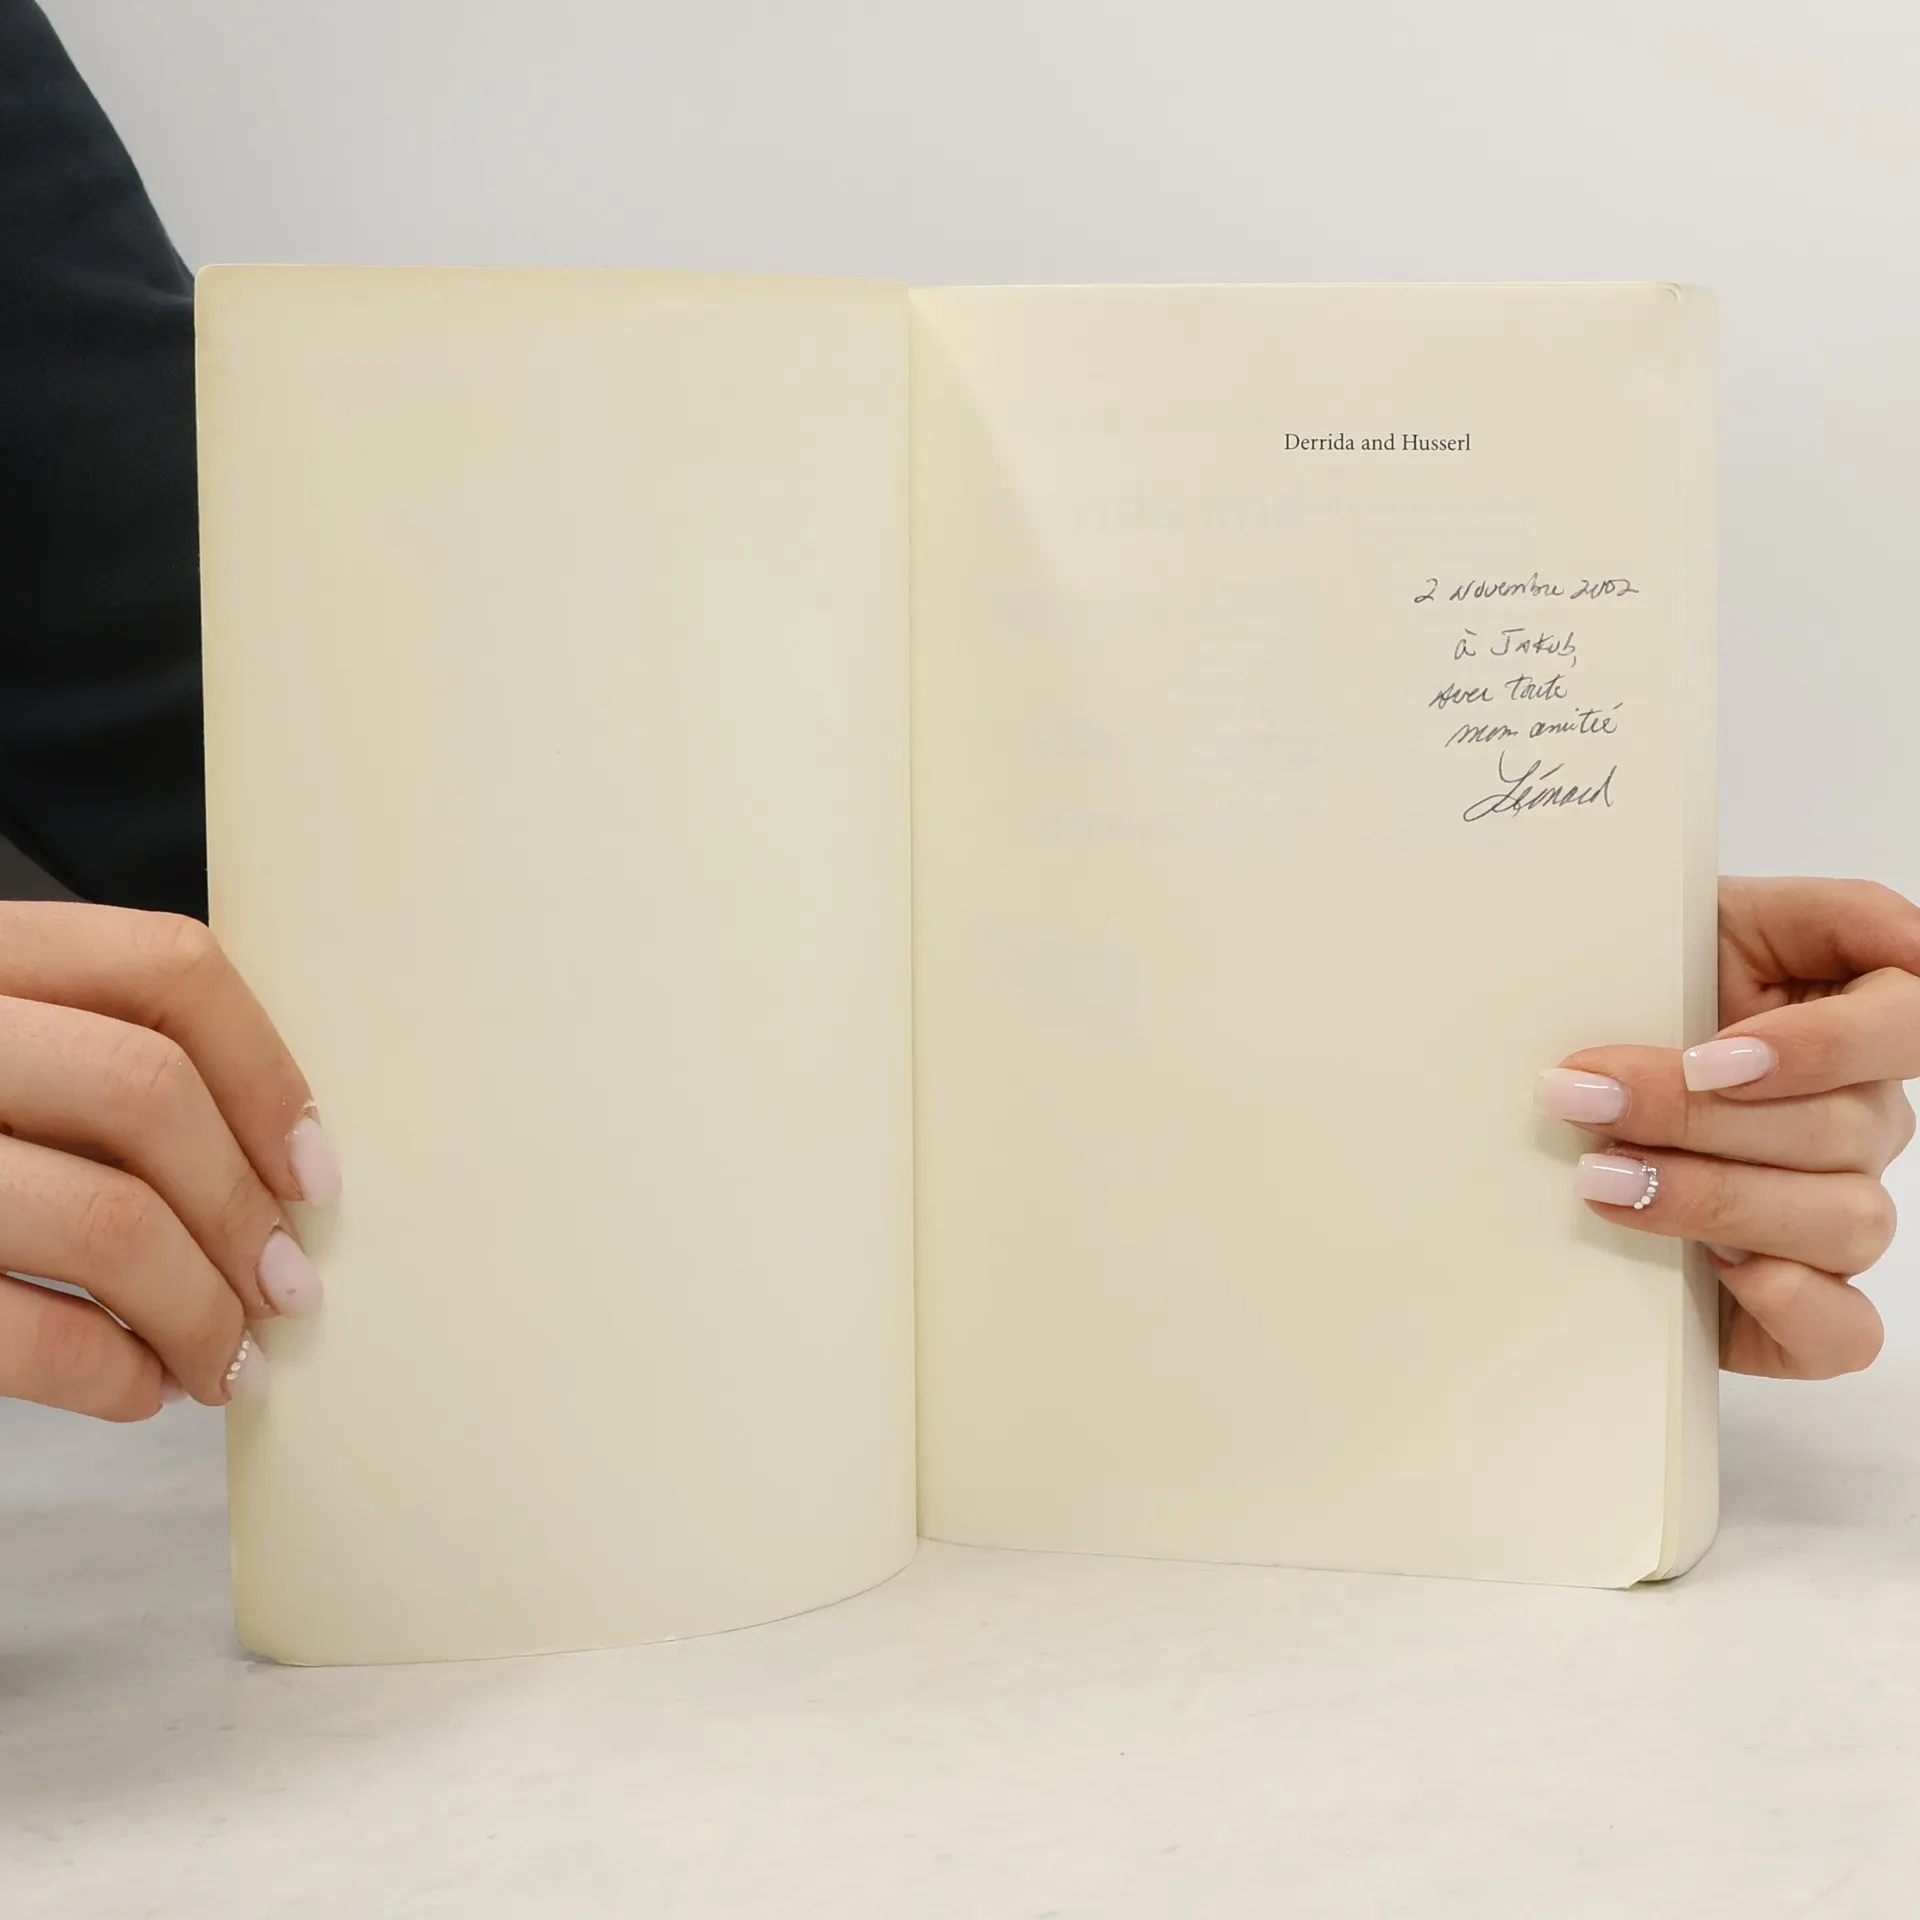 Derrida and Husserl
2 Novembre 2002
à Jakub,
avec toute
mon amitié
Léonard